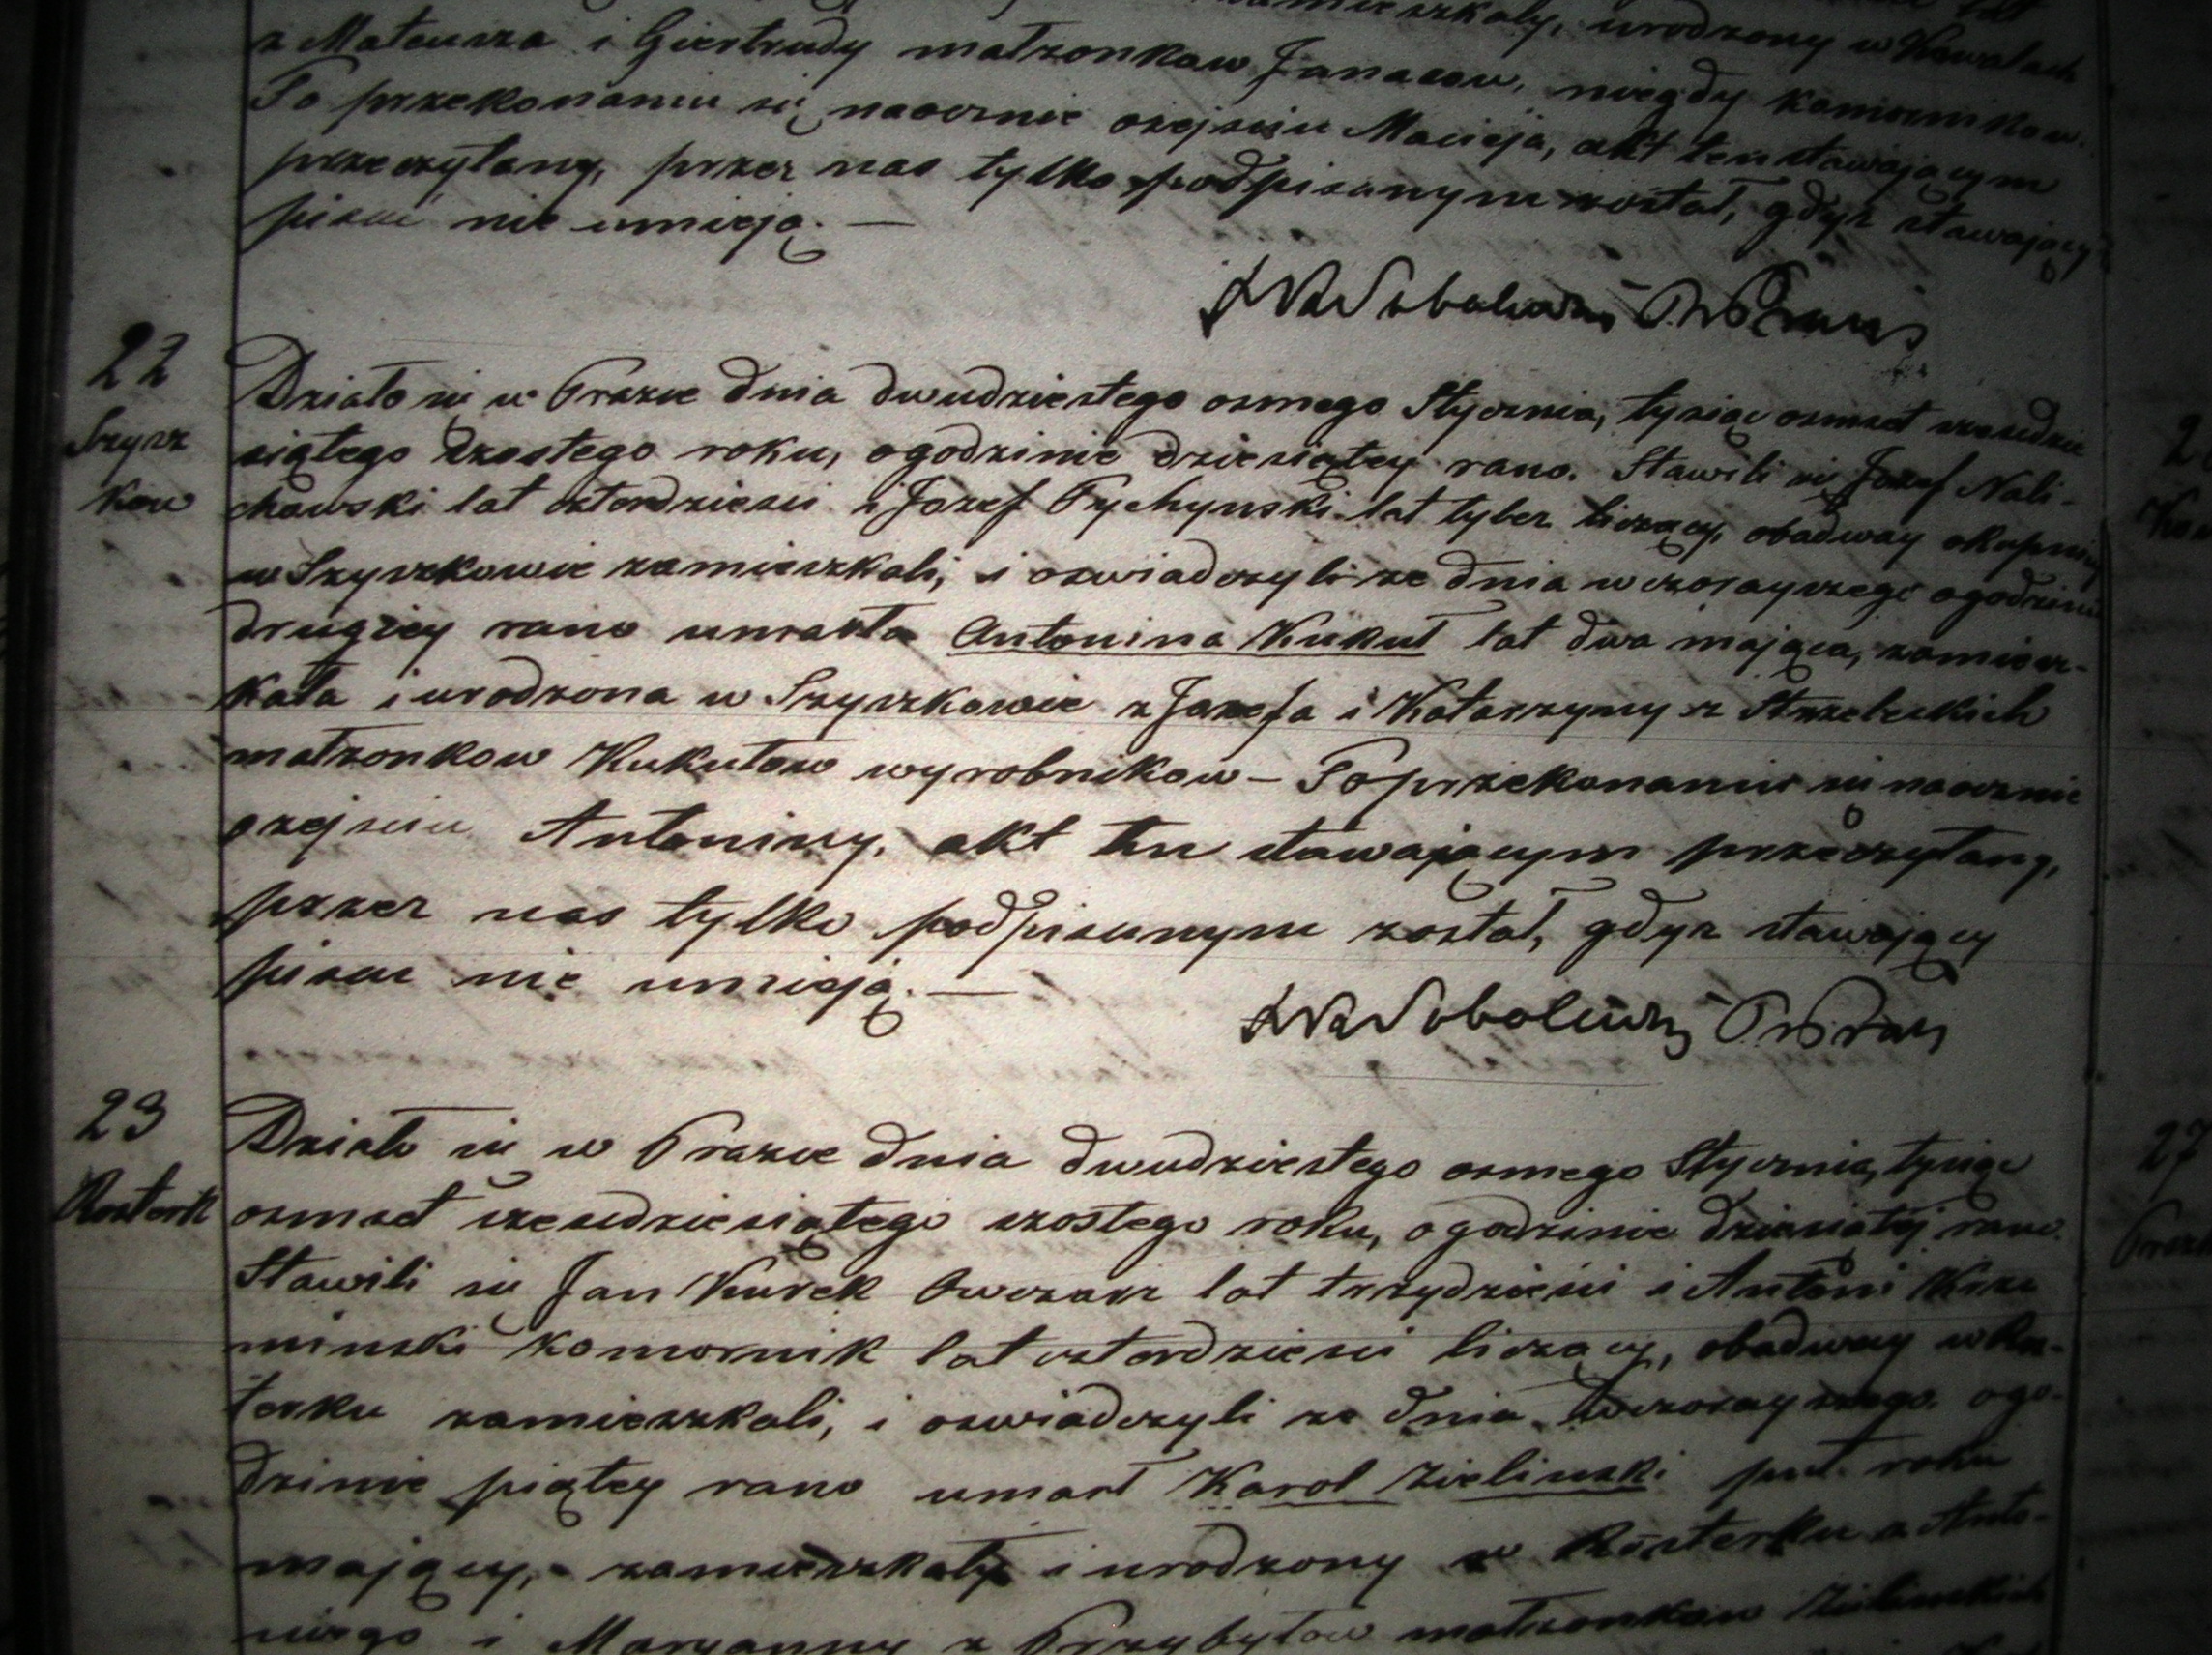 zamieszkały, urodzony w Kowalach
z Mateusza i Giertrudy małzonkow Janasow, niegdy komornikow.
Po przekonaniu się naocznie ozejsciu Macieja, akt ten stawaiącym
przeczytany, przez nas tylko podpisanym został, gdyz stawaiący
pisac nie umieją. —
22
Szysz
kow
Działo się w Praszce dnia dwudziestego osmego Stycznia, tysiąc osmset szescdzie
siątego szostego roku, ogodzinie dziesiątey rano. Stawili się Jozef Nali-
chowski lat czterdziesci i Jozef Pychynski lat tylez liczący, obadway okupnicy
w Szyszkowie zamieszkali, i oswiadczyli ze dnia wczorayszego ogodzinie
drugiey rano umarła Antonina Kukuł lat dwa mająca, zamiesz-
kała i urodzona w Szyszkowie z Jozefa i Katarzyny z Strzeleckich
małzonkow Kukułow wyrobnikow — Po przekonaniu się naocznie
ozejsciu Antoniny, akt ten stawaiącym przeczytany,
przez nas tylko podpisanym został, gdyz stawaiący
pisac nie umieją. —
23
Rosterk
Działo się w Praszce dnia dwudziestego osmego Stycznia, tysiąc
osmset szescdziesiątego szostego roku, ogodzinie dziesiątéj rano.
Stawili się Jan Kurek Owczarz lat trzydziesci i Antoni Krze
minski komornik lat czterdziesci liczący, obadway w Ros-
terku zamieszkali, i oswiadczyli ze dnia wczorayszego ogo-
dzinie piątey rano umarł Karol Zielinski puł roku
mający, zamieszkały i urodzony w Rosterku z Anto-
niego i Maryanny z Przybyłow małzonkow Zielinskich
27